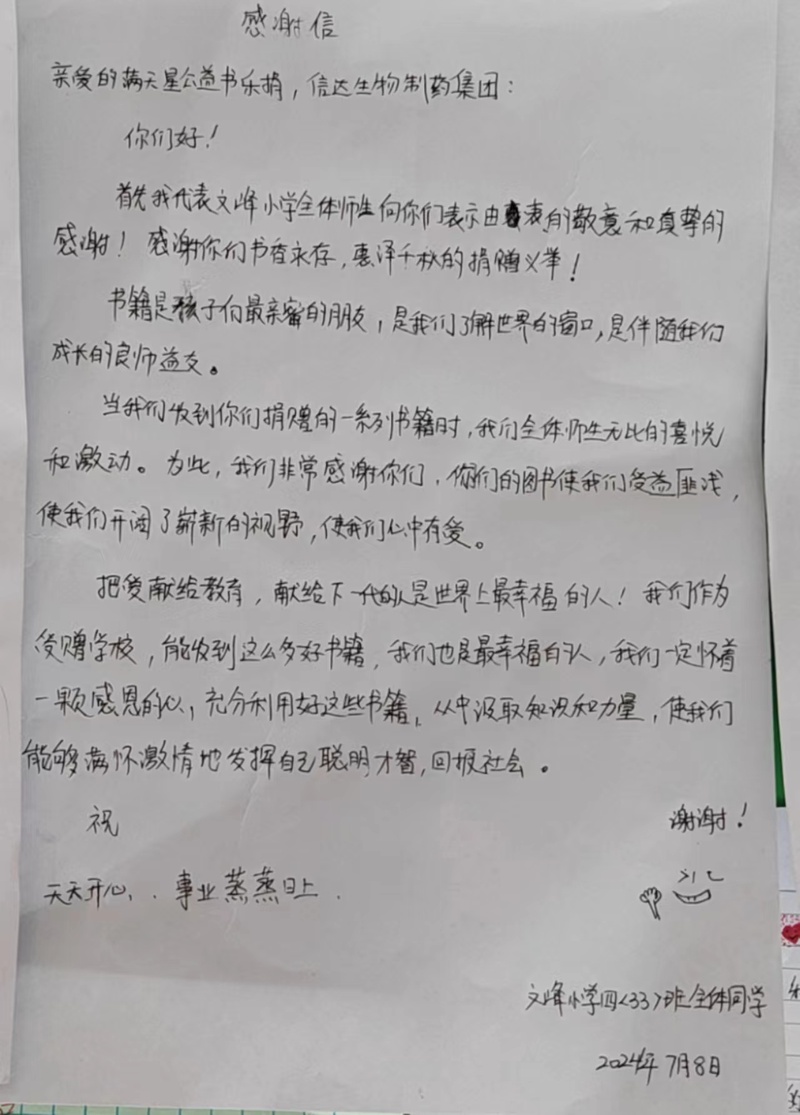 感谢信
亲爱的满天星公益书乐捐，信达生物制药集团：
你们好！
首先我代表文峰小学全体师生向你们表示由衷的敬意和真挚的
感谢！感谢你们书香永存，惠泽千秋的捐赠义举！
书籍是孩子们最亲密的朋友，是我们了解世界的窗口，是伴随我们
成长的良师益友。
当我们收到你们捐赠的一系列书籍时，我们全体师生无比的喜悦
和激动。为此，我们非常感谢你们，你们的图书使我们受益匪浅，
使我们开阔了崭新的视野，使我们心中有爱。
把爱献给教育，献给下一代的人是世界上最幸福的人！我们作为
受赠学校，能收到这么多好书籍，我们也是最幸福的人，我们一定怀着
一颗感恩的心，充分利用好这些书籍，从中汲取知识和力量，使我们
能够满怀激情地发挥自己聪明才智，回报社会。
祝 谢谢！
天天开心，事业蒸蒸日上．
文峰小学四<33>班全体同学
2024年7月8日